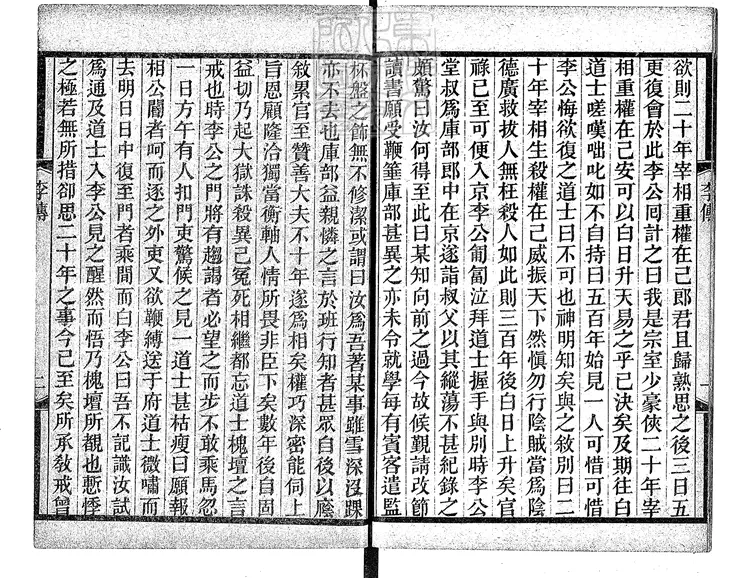 欲則二十年宰相重權在己郎君且歸熟思之後三日五
更復會於此李公囘計之曰我是宗室少豪俠二十年宰
相重權在己安可以白日升天易之乎已決矣及期往白
道士嗟嘆咄叱如不自持曰五百年始見一人可惜可惜
李公悔欲復之道士曰不可也神明知矣與之敘別曰二
十年宰相生殺權在己威振天下然愼勿行陰賊當爲陰
德廣救拔人無枉殺人如此則三百年後白日上升矣官
祿已至可便入京李公匍匐泣拜道士握手與別時李公
堂叔爲庫部郎中在京遂詣叔父以其縱蕩不甚紀錄之
頗驚曰汝何得至此曰某知向前之過今故候覲請改節
讀書願受鞭箠庫部甚異之亦未令就學每有賓客遣監
杯盤之飾無不修潔或謂曰汝爲吾著某事雖雪深沒踝
亦不去也庫部益親憐之言於班行知者甚眾自後以廕
敘累官至贊善大夫不十年遂爲相矣權巧深密能伺上
旨恩顧隆洽獨當衡軸人情所畏非臣下矣數年後自固
益切乃起大獄誅殺異己冤死相繼都忘道士槐壇之言
戒也時李公之門將有趨謁者必望之而步不敢乘馬忽
一日方午有人扣門吏驚候之見一道士甚枯瘦曰願報
相公闇者呵而逐之外吏又欲鞭縛送于府道士微嘯而
去明日日中復至門者乘間而白李公曰吾不記識汝試
爲通及道士入李公見之醒然而悟乃槐壇所覩也慙悸
之極若無所措卻思二十年之事今已至矣所承敎戒曾
李傳
一
李傳
二